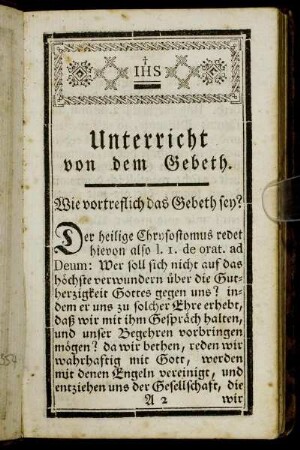 IHS
Unterricht
von dem Gebeth.
Wie vortreflich das Gebeth sey?
Der heilige Chrysostomus redet
hievon also l. 1. de orat. ad
Deum: Wer soll sich nicht auf das
höchste verwundern über die Gut-
herzigkeit Gottes gegen uns? in-
dem er uns zu solcher Ehre erhebt,
daß wir mit ihm Gespräch halten,
und unser Begehren vorbringen
mögen? da wir bethen, reden wir
wahrhaftig mit Gott, werden
mit denen Engeln vereinigt, und
entziehen uns der Gesellschaft, die
A 2 wir